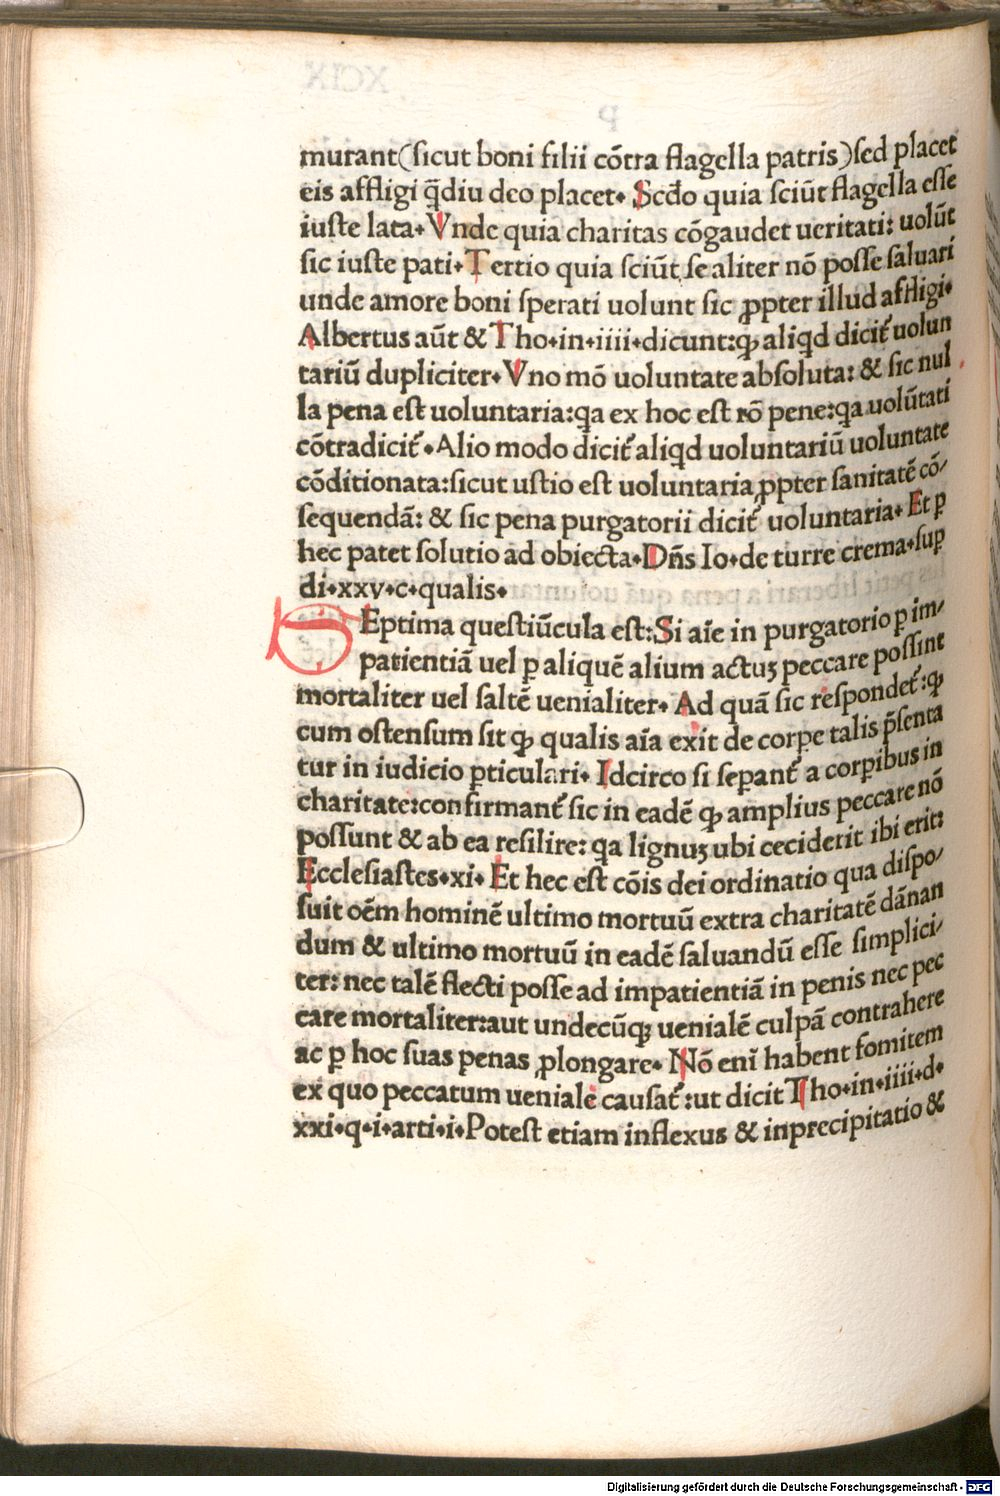 murant(ſicut boni filii cōtra flagella patris)ſed placet
eis affligi q̄diu deo placet. Scd̄o quia ſciūt flagella eſſe
iuſte lata. Vnde quia charitas cōgaudet ueritati: uolūt
ſic iuſte pati. Tertio quia ſciūt ſe aliter nō poſſe ſaluari
unde amore boni ſperati uolunt ſic ꝓpter illud affligi.
Albertus aūt & Tho.in.iiii.dicunt:ꝙ aliqd dicit᷑ uolun
tariū dupliciter. Vno mō uoluntate abſoluta: & ſic nul
la pena eſt uoluntaria:qa ex hoc eſt rō pene:qa uolūtati
cōtradicit᷑. Alio modo dicit᷑ aliqd uoluntariū uoluntate
cōditionata:ſicut uſtio eſt uoluntaria ꝓpter ſanitatē cō/
ſequendā: & ſic pena purgatorii dicit᷑ uoluntaria. Et ꝑ
hec patet ſolutio ad obiecta. Dn̄s Io.de turre crema.ſuꝑ
di.xxv.c.qualis.
SEptima queſtiūcula eſt:Si aīe in purgatorio ꝑ im/
patientiā uel ꝑ aliquē alium actuꝫ peccare poſſint
mortaliter uel ſaltē uenialiter. Ad quā ſic reſpondet᷑:ꝙ
cum oſtenſum ſit ꝙ qualis aīa exit de corꝑe talis p̄ſenta
tur in iudicio ꝑticulari. Idcirco ſi ſeꝑant᷑ a corꝑibus in
charitate:confirmant᷑ ſic in eadē ꝙ amplius peccare nō
poſſunt & ab ea reſilire: qa lignuꝫ ubi ceciderit ibi erit:
Eccleſiaſtes.xi. Et hec eſt cōis dei ordinatio qua diſpo/
ſuit oēm hominē ultimo mortuū extra charitatē dānan
dum & ultimo mortuū in eadē ſaluandū eſſe ſimplici/
ter: nec talē flecti poſſe ad impatientiā in penis nec pec
care mortaliter:aut undecūqꝫ uenialē culpā contrahere
ac ꝑ hoc ſuas penas ꝓlongare. Nō enī habent fomitem
ex quo peccatum uenialē cauſat᷑:ut dicit Tho.in.iiii.d.
xxi.q.i.arti.i.Poteſt etiam inflexus & inprecipitatio &
Digitalisierung gefördert durch die Deutsche Forschungsgemeinschaft - DFG